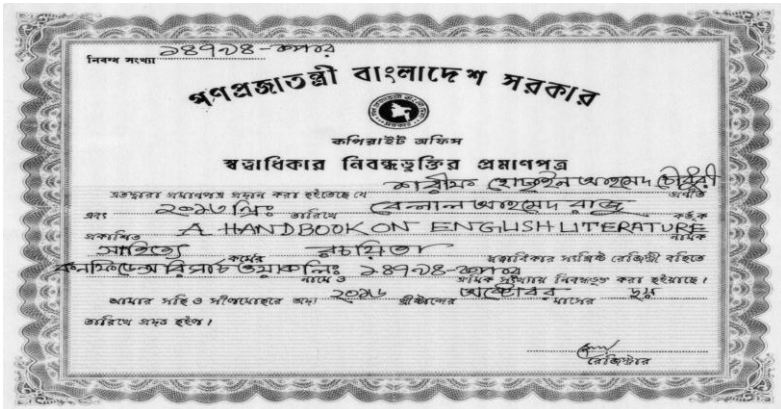 নিবন্ধ সংখ্যা ১৪৭৯৪-কপার
গণপ্রজাতন্ত্রী বাংলাদেশ সরকার
কপিরাইট অফিস
স্বত্বাধিকার নিবন্ধভুক্তির প্রমাণপত্র
এতদ্দ্বারা প্রমাণপত্র প্রদান করা হইতেছে যে শরীফ হোসাইন আহমেদ চৌধুরী প্রণীত
এবং ২০১৬ খ্রিঃ তারিখে বেলাল আহমেদ রাজু কর্তৃক
প্রকাশিত A HANDBOOK ON ENGLISH LITERATURE নামক
সাহিত্য কর্মের রচয়িতা স্বত্বাধিকার সংশ্লিষ্ট রেজিস্ট্রী বহিতে
নামে ও ১৪৭৯৪-কপার ক্রমিক সংখ্যায় নিবন্ধভুক্ত করা হইয়াছে।
আমার সহি ও সীলমোহরে অদ্য ২০১৬ খ্রীষ্টাব্দের অক্টোবর মাসের
তারিখে প্রদত্ত হইল।
রেজিস্ট্রার